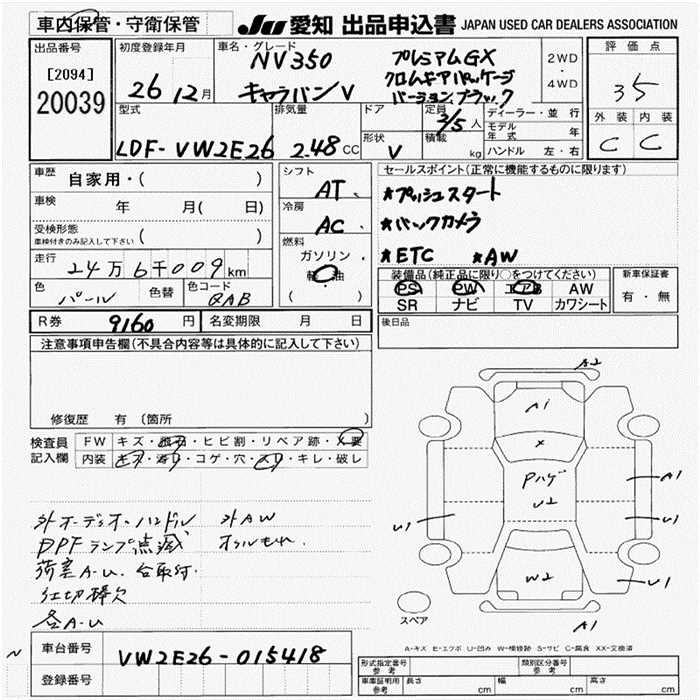 車内保管・守衛保管
JU 愛知 出品申込書 JAPAN USED CAR DEALERS ASSOCIATION
出品番号
[2094]
20039
初度登録年月
26 12月
車名・グレード
NV350
キャラバンV
プレミアムGX
クロムギアパッケージ
バージョンブラック
2WD
・
4WD
評価点
35
外装 内装
C C
型式
LDF-VW2E26
排気量
2.48 CC
ドア
形状
V
定員
2/5人
積載
kg
ディーラー・並行
モデル年式 年
ハンドル 左・右
車歴 自家用・( )
車検 年 月( 日)
受検形態
車検付きのみ記入して下さい ( )
走行
24万6千009km
色 パール 色替 色コード QAB
シフト
AT
冷房
AC
燃料
ガソリン
軽・油
( )
セールスポイント(正常に機能するものに限ります)
★プッシュスタート
★バックカメラ
★ETC ★AW
装備品(純正品に限り○をつけてください)
PS PW エアB AW
SR ナビ TV カワシート
新車保証書
有・無
R券 9160円 名変期限 月 日
後日品
注意事項申告欄(不具合内容等は具体的に記入して下さい)
修復歴 有(箇所 )
検査員 FW キズ・飛石・ヒビ割・リペア跡・X要
記入欄 内装 キズ・汚れ・コゲ・穴・スレ・キレ・破レ
外オーディオ・ハンドル 外AW
DPFランプ点滅 オイルもれ、
荷室A-U、台取付・
仕切棒欠
各A-U
A2
A1
X
Pハゲ
U2
A1
U1
U1
W2
U1
A1
スペア
A-キズ E-エクボ U-凹み W-補修跡 S-サビ C-腐食 XX-交換済
車台番号 VW2E26-015418
登録番号
形式指定番号 参考 類別区分番号 参考
車庫証明用 参考 長さ cm 幅 cm 高さ cm